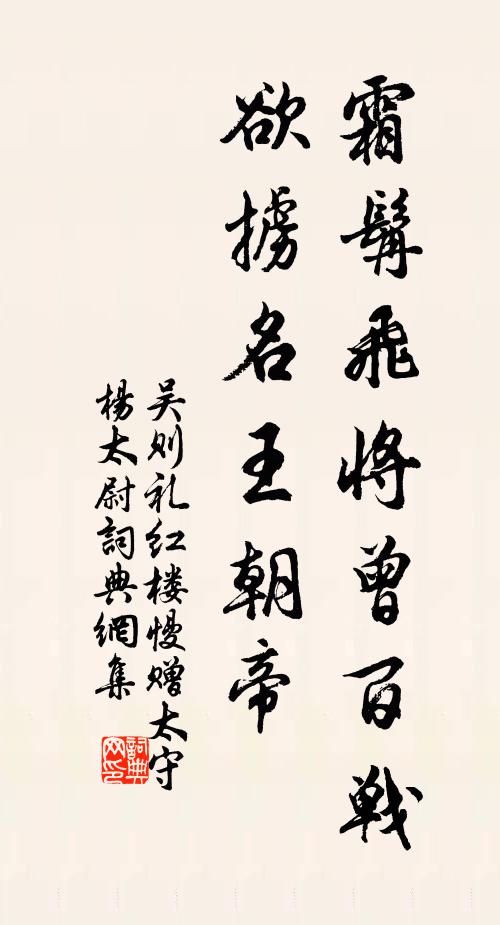 霜髯飛將曾百戰
欲擄名王朝帝
吴则礼红楼慢赠太守
楊太尉詞典網集
詞典網印